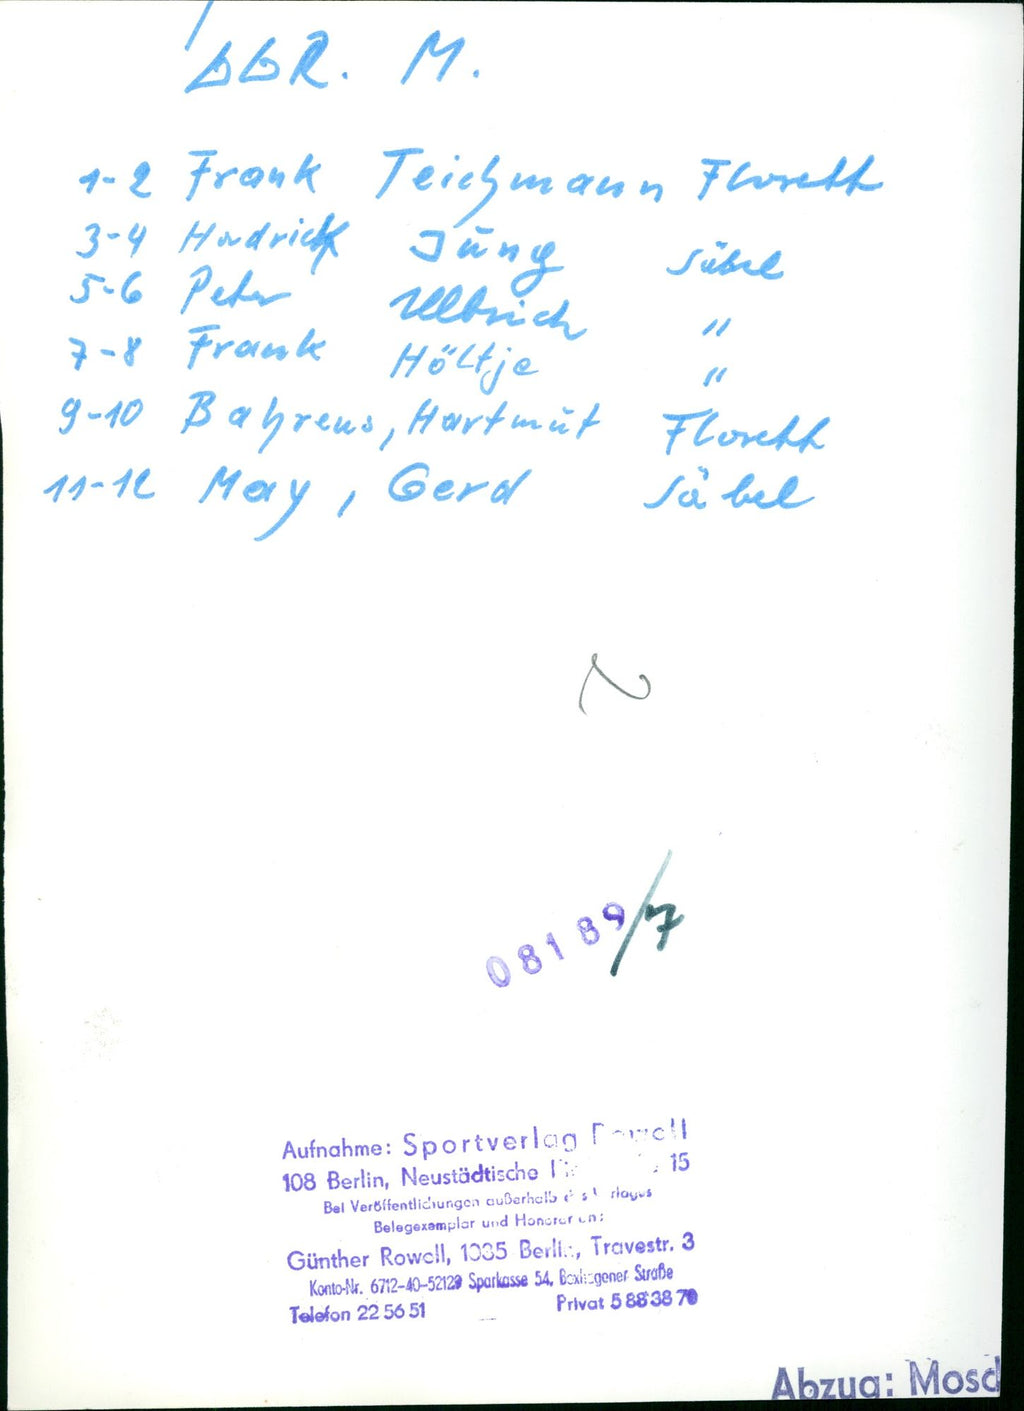 DDR. M.
1-2 Frank Teichmann Florett
3-4 Jüng Säbel
5-6 Peter Ulbrich "
7-8 Frank Höltje "
9-10 Bahrens, Hartmut Florett
11-12 May, Gerd Säbel
08189/7
Aufnahme: Sportverlag Rowell
108 Berlin, Neustädtische 15
Bei Veröffentlichungen außerhalb des Verlages
Belegexemplar und Honorar an:
Günther Rowell, 1035 Berlin, Travestr. 3
Konto-Nr. 6712-40-52129 Sparkasse 54, Boxhagener Straße
Telefon 22 56 51 Privat 5 88 38 70
Abzug: Mosd